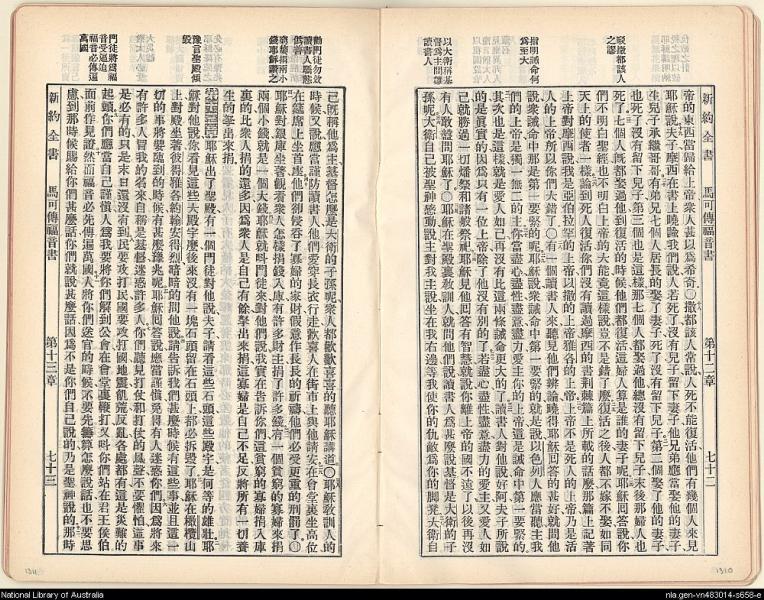 駁撒都該人
之謬
指明誡命何
爲至大
以大衞稱基
督爲主問難
讀書人
新約全書 馬可傳福音書 第十二章 七十二
帝的東西當歸給上帝衆人甚以爲希奇○撒都該人常說人死不能復活他們有幾個人來見
耶穌說夫子摩西在書上曉諭我們說人若死了沒有兒子留下妻子他兄弟應當娶他的妻子
生兒子承繼哥哥有弟兄七個人居長的娶了妻子死了沒有留下兒子第二個娶了他的妻子
也死了沒有留下兒子第三個也是這樣那七個人都娶過他總沒有留下兒子末後那婦人也
死了七個人旣都娶過他到復活的時候他們都復活這婦人算是誰的妻子呢耶穌回答說你
們不明白聖經也不明白上帝的大能竟這樣說豈不是錯了麽復活之後人都不嫁不娶如同
天上的使者一樣論到死人復活你們沒有讀過摩西的書荆棘篇上所載的話麽那篇上記著
上帝對摩西說我是亞伯拉罕的上帝以撒的上帝雅各的上帝上帝不是死人的上帝乃是活
人的上帝所以你們大錯了○有一個讀書人來聽見他們辨論曉得耶穌回答的甚好就問他
說衆誡命中那是第一要緊的呢耶穌說衆誡命中第一要緊的就是說以色列人應當聽主我
們的上帝是獨一無二的主你當盡心盡性盡意盡力愛主你的上帝這是誡命中第一要緊的
其次也是這樣就是愛人如己再沒有比這兩條誡命更大的了讀書人對他說好阿夫子所說
的是眞實的因爲只有一位上帝除了他沒有別的了若盡心盡性盡意盡力的愛主又愛人如
己就勝過一切燔祭和諸般祭祀耶穌見他回答有智慧就說你離上帝的國不遠了以後再沒
有人敢盤問耶穌了○耶穌在聖殿裏敎訓人就問他們說讀書人爲甚麽說基督是大衞的子
孫呢大衞自己被聖神感動說主對我主說坐在我右邊等我使你的仇敵爲你的脚凳大衞自
勸門徒勿效
讀書人驕態
僞善
窮婦捐兩小
錢耶穌讚之
豫言聖殿傾
毀
門徒將爲福
音受逼迫
福音必傳遍
萬國
己旣稱他爲主基督怎麽是大衞的子孫呢衆人都歡歡喜喜的聽耶穌講道○耶穌敎訓人的
時候又說應當謹防讀書人他們愛穿長衣行走歡喜人在街市上與他請安在會堂裏坐高位
在筵席上坐首座他們侵吞了寡婦的家財假意作長長的祈禱他們必受更重的刑罰了○
耶穌對銀庫坐著觀看衆人怎樣捐錢入庫有許多財主捐了許多錢有一個貧窮的寡婦來捐
兩個小錢就是一個大錢耶穌就叫門徒來對他們說我實在告訴你們這貧窮的寡婦捐入庫
裏的比衆人捐的還多因爲衆人是自己有餘拏出來捐這寡婦是自己不足反將所有一切養
生的拏出來捐
耶穌出了聖殿有一個門徒對他說夫子請看這些石頭這些殿宇是何等的雄壯耶
穌對他說你看見這些大殿宇麽後來沒有一塊石頭留在石頭上都必拆毀了耶穌在橄欖山
上對殿坐著彼得雅各約翰安得烈暗暗的問他說請告訴我們甚麽時候有這些事並且這一
切的事將要臨到的時候有甚麽豫兆呢耶穌回答說應當謹愼免得有人迷惑你們因爲將來
有許多人冒我的名來自稱是基督迷惑許多人你們聽見打仗和打仗的風聲不要懼怕這事
是必有的只是末日還沒有到民要攻打民國要攻打國地震飢荒反亂各處都有這是災難的
起頭你們應當自己謹愼人爲我要將你們解到公會在會堂裏鞭打又叫你們站在君王侯伯
面前作見證然而福音必先傳遍萬國人將你們送官的時候不要先籌算怎麽說話也不要思
慮到那時候賜給你們甚麽話你們就說甚麽話因爲不是你們自己說的乃是聖神說的那時
新約全書 馬可傳福音書 第十三章 七十三
1311
1310
National Library of Australia
nla.gen-vn483014-s658-e